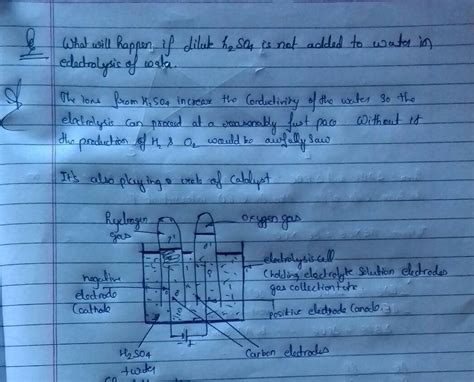 Q What will happen, if dilute H2SO4 is not added to water in
electrolysis of water.
The ions from H2SO4 increase the Conductivity of the water so the
electrolysis can proceed at a reasonably fast pace. Without it
the production of H2 & O2 would be awfully
It's also playing a role of Catalyst
hydrogen gas
oxygen gas
negative
electrode
(cathode
electrolysis cell
(holding electrolyte solution electrodes
gas collection tube
positive electrode (anode
H2SO4
+water
Carbon electrodes